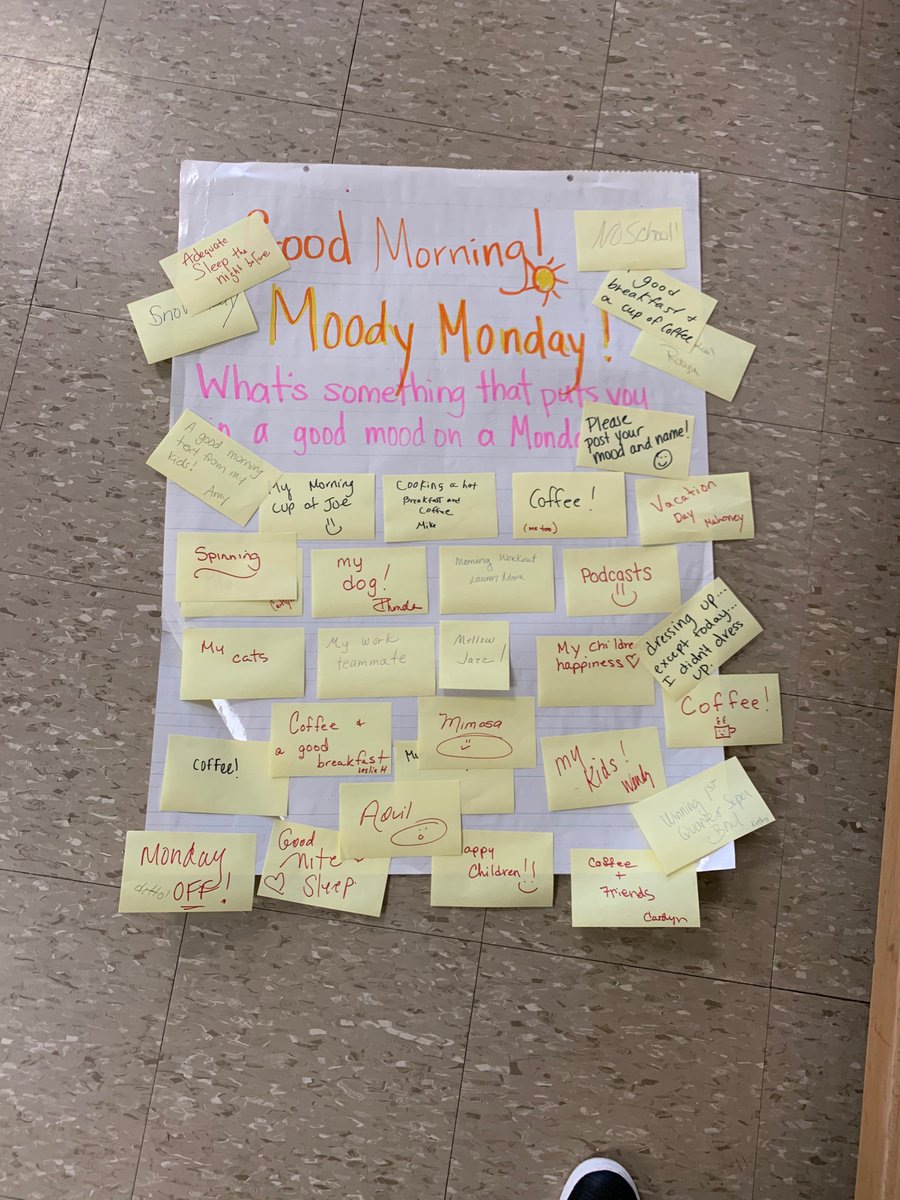 Good Morning!
Moody Monday!
What's something that puts you
in a good mood on a Monday
NO School!
Adequate
Sleep the
night before
Snow
good
breakfast +
a cup of coffee
Please
post your
mood and name!
A good morning
text from my
kids!
Amy
My Morning
cup of Joe
Cooking a hot
Breakfast and
Coffee
Mike
Coffee!
(me too)
Vacation
Day Mahoney
Spinning
my
dog!
Morning Workout
Lauren Moore
Podcasts
dressing up...
except today...
I didn't dress
up.
My cats
My work
teammate
Mellow
Jazz!
My childre
happiness
Coffee!
Coffee &
a good
breakfast
Leslie H
Mimosa
coffee!
my
kids!
Wendy
Winning 1st
Quarter Super
Bowl
April
Monday
ditto! OFF!
Good
nite
Sleep
appy
Children!!
Coffee
+
Friends
Carolyn